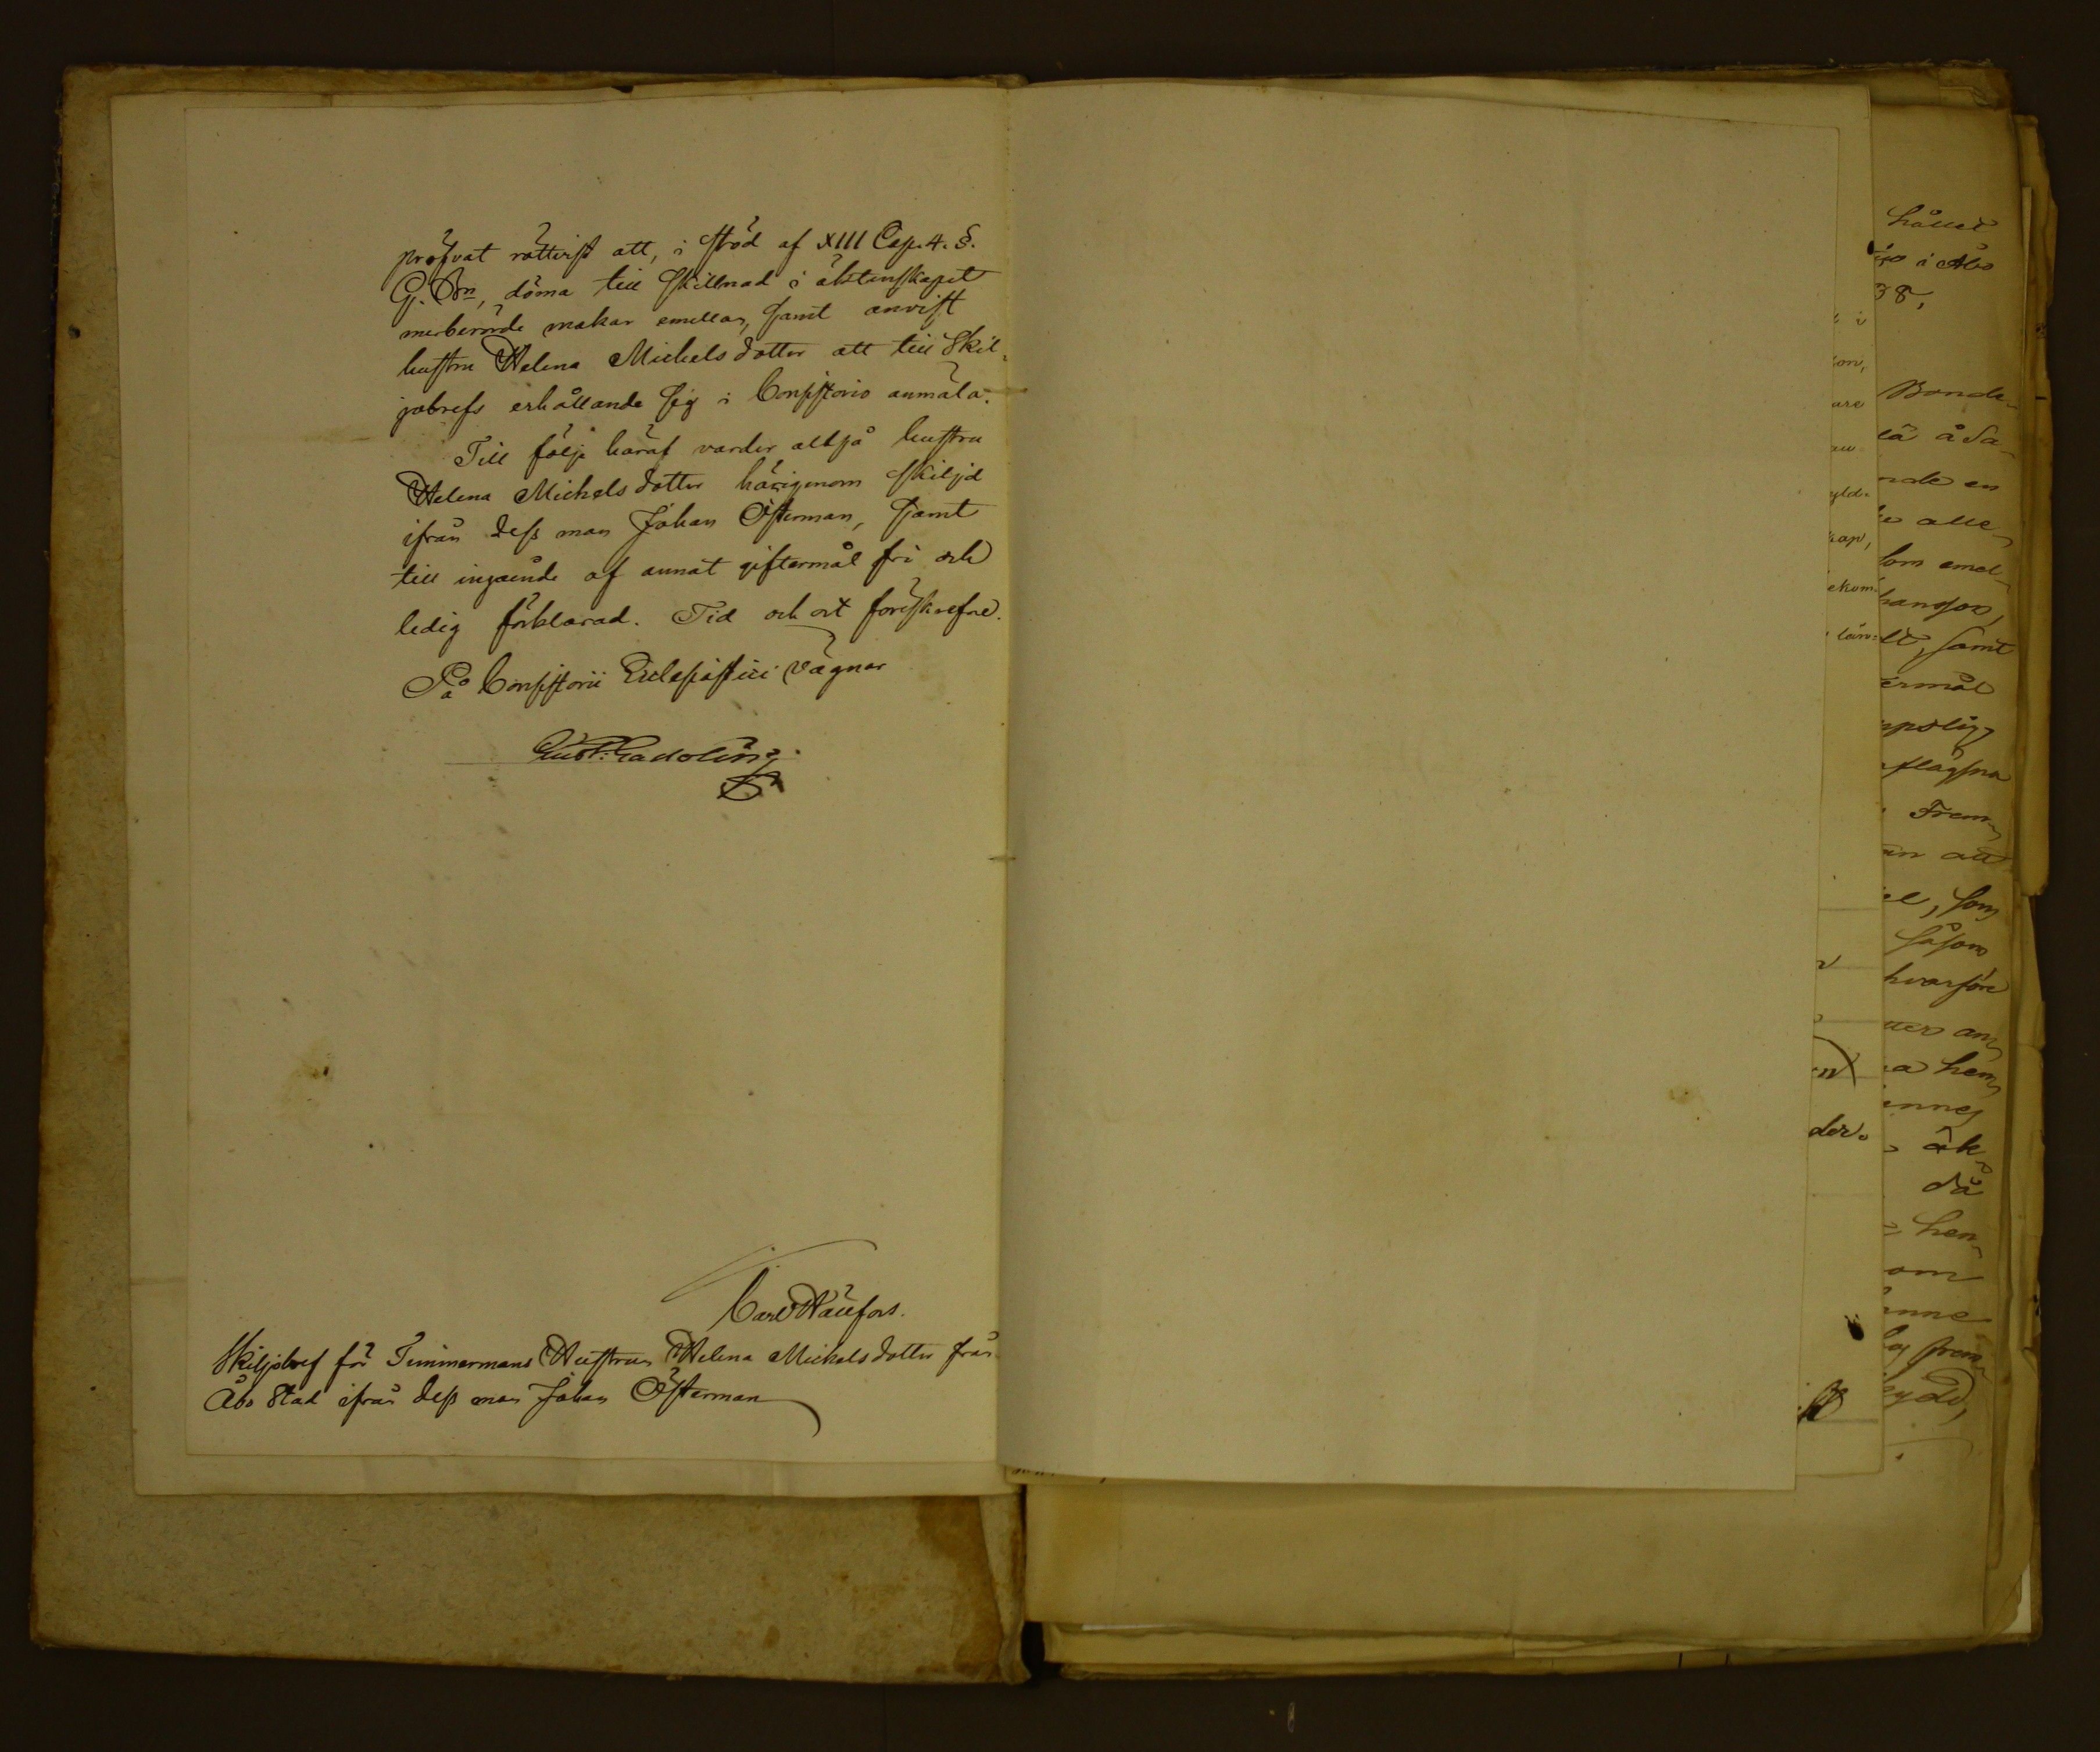 pröfvat rättvist att, i stöd af XIII Cap. 4. §.
G. Bn, döma till skillnad i äktenskapet
merberörde makar emellan, samt anvist
hustru Helena Michelsdotter att till Skil-
jobrefs erhållande sig i Consistorio anmäla.
Till följe häraf varder altså hustru
Helena Michelsdotter härigenom skiljd
ifrån dess man Johan Österman, samt
till ingående af annat giftermål fri och
ledig förklarad. Tid och ort föreskrefne.
På Consistorii Ecclesiastici vägnar
Gust: Gadolin
Skiljobref för Timmermans Hustrun Helena Michelsdotter från
Åbo Stad ifrån dess man Johan Österman
hållet
i Åbo
38,
Bonde-
åda-
nde en
alle-
som emel-
samt
ermål
Frem-
som
såsom
hvarföre
hem-
äk-
då
hen-
om
der.